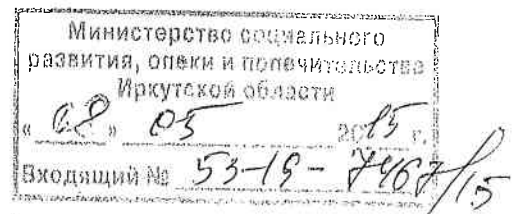 Министерство социального
развития, опеки и попечительства
Иркутской области
« 08 » 05 2015 г.
Входящий № 53-19-7467/15